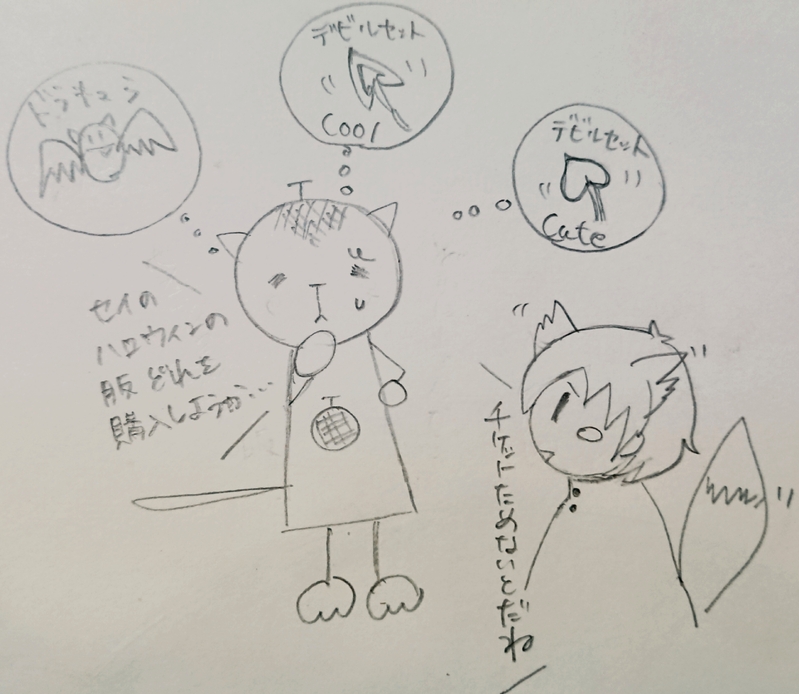 デビルセット
Cool
ドラキュラ
デビルセット
Cute
セイの
ハロウィンの
服 どれを
購入しようか…
チケットためないとだね